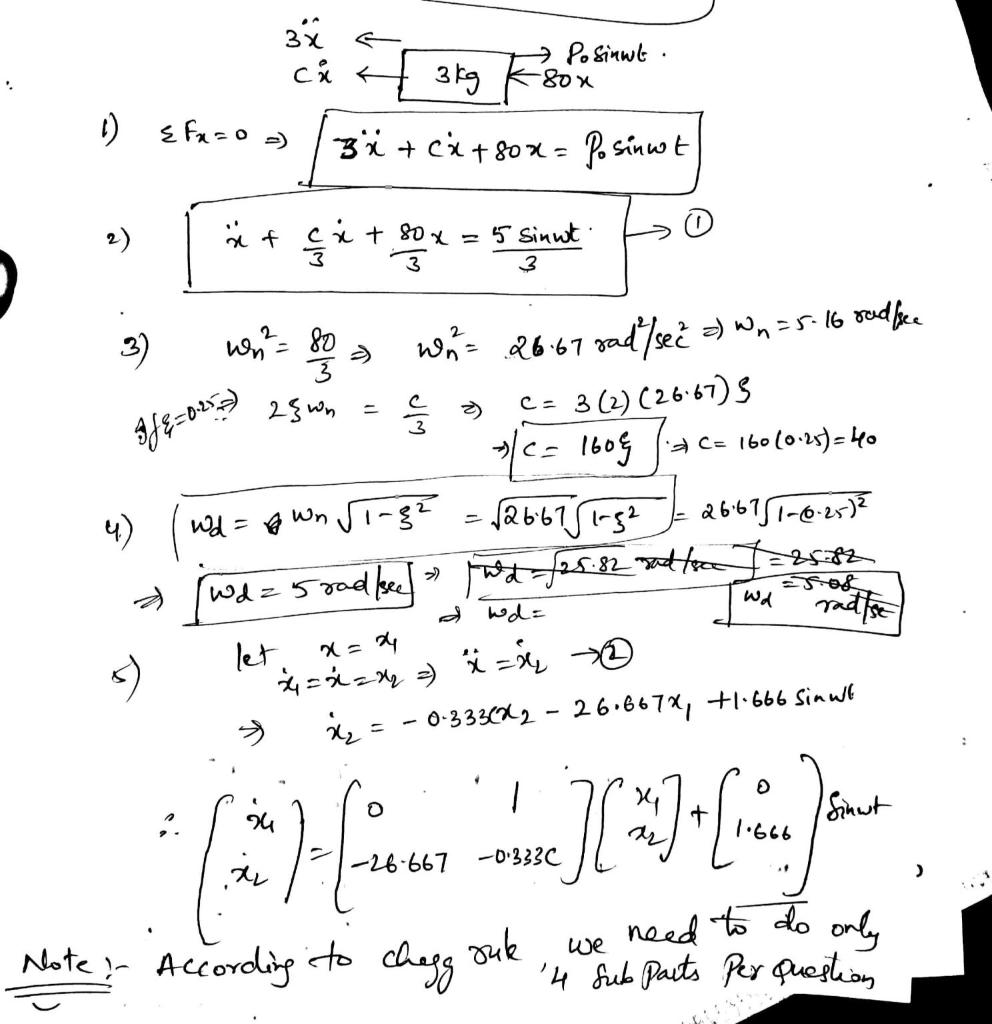 3ẍ ←
cẋ ← 3kg → P₀ sinωt .
← 80x
1) ΣFx = 0 ⇒ 3ẍ + cẋ + 80x = P₀ sinωt
2) ẍ + c/3 ẋ + 80/3 x = 5 sinωt / 3 → ①
3) ωn² = 80/3 ⇒ ωn² = 26.67 rad²/sec² ⇒ ωn = 5.16 rad/sec
If ξ=0.25 ⇒ 2ξωn = c/3 ⇒ c = 3(2)(26.67)ξ
⇒ c = 160ξ ⇒ c = 160(0.25) = 40
4) ωd = ωn √1-ξ² = √26.67 √1-ξ² = 26.67 √1-(0.25)²
⇒ ωd = 5 rad/sec ⇒ ωd = √25.82 rad/sec = 25.82
= 5.08
⇒ ωd = ωd rad/se
5) let x = x₁
ẋ₁ = ẋ = x₂ ⇒ ẍ = ẋ₂ → ②
⇒ ẋ₂ = -0.333cx₂ - 26.667x₁ + 1.666 sinωt
∴ [ẋ₁ ẋ₂] = [0 1 -26.667 -0.333c] [x₁ x₂] + [0 1.666] sinωt
Note :- According to chegg rule, we need to do only
'4 sub parts per question